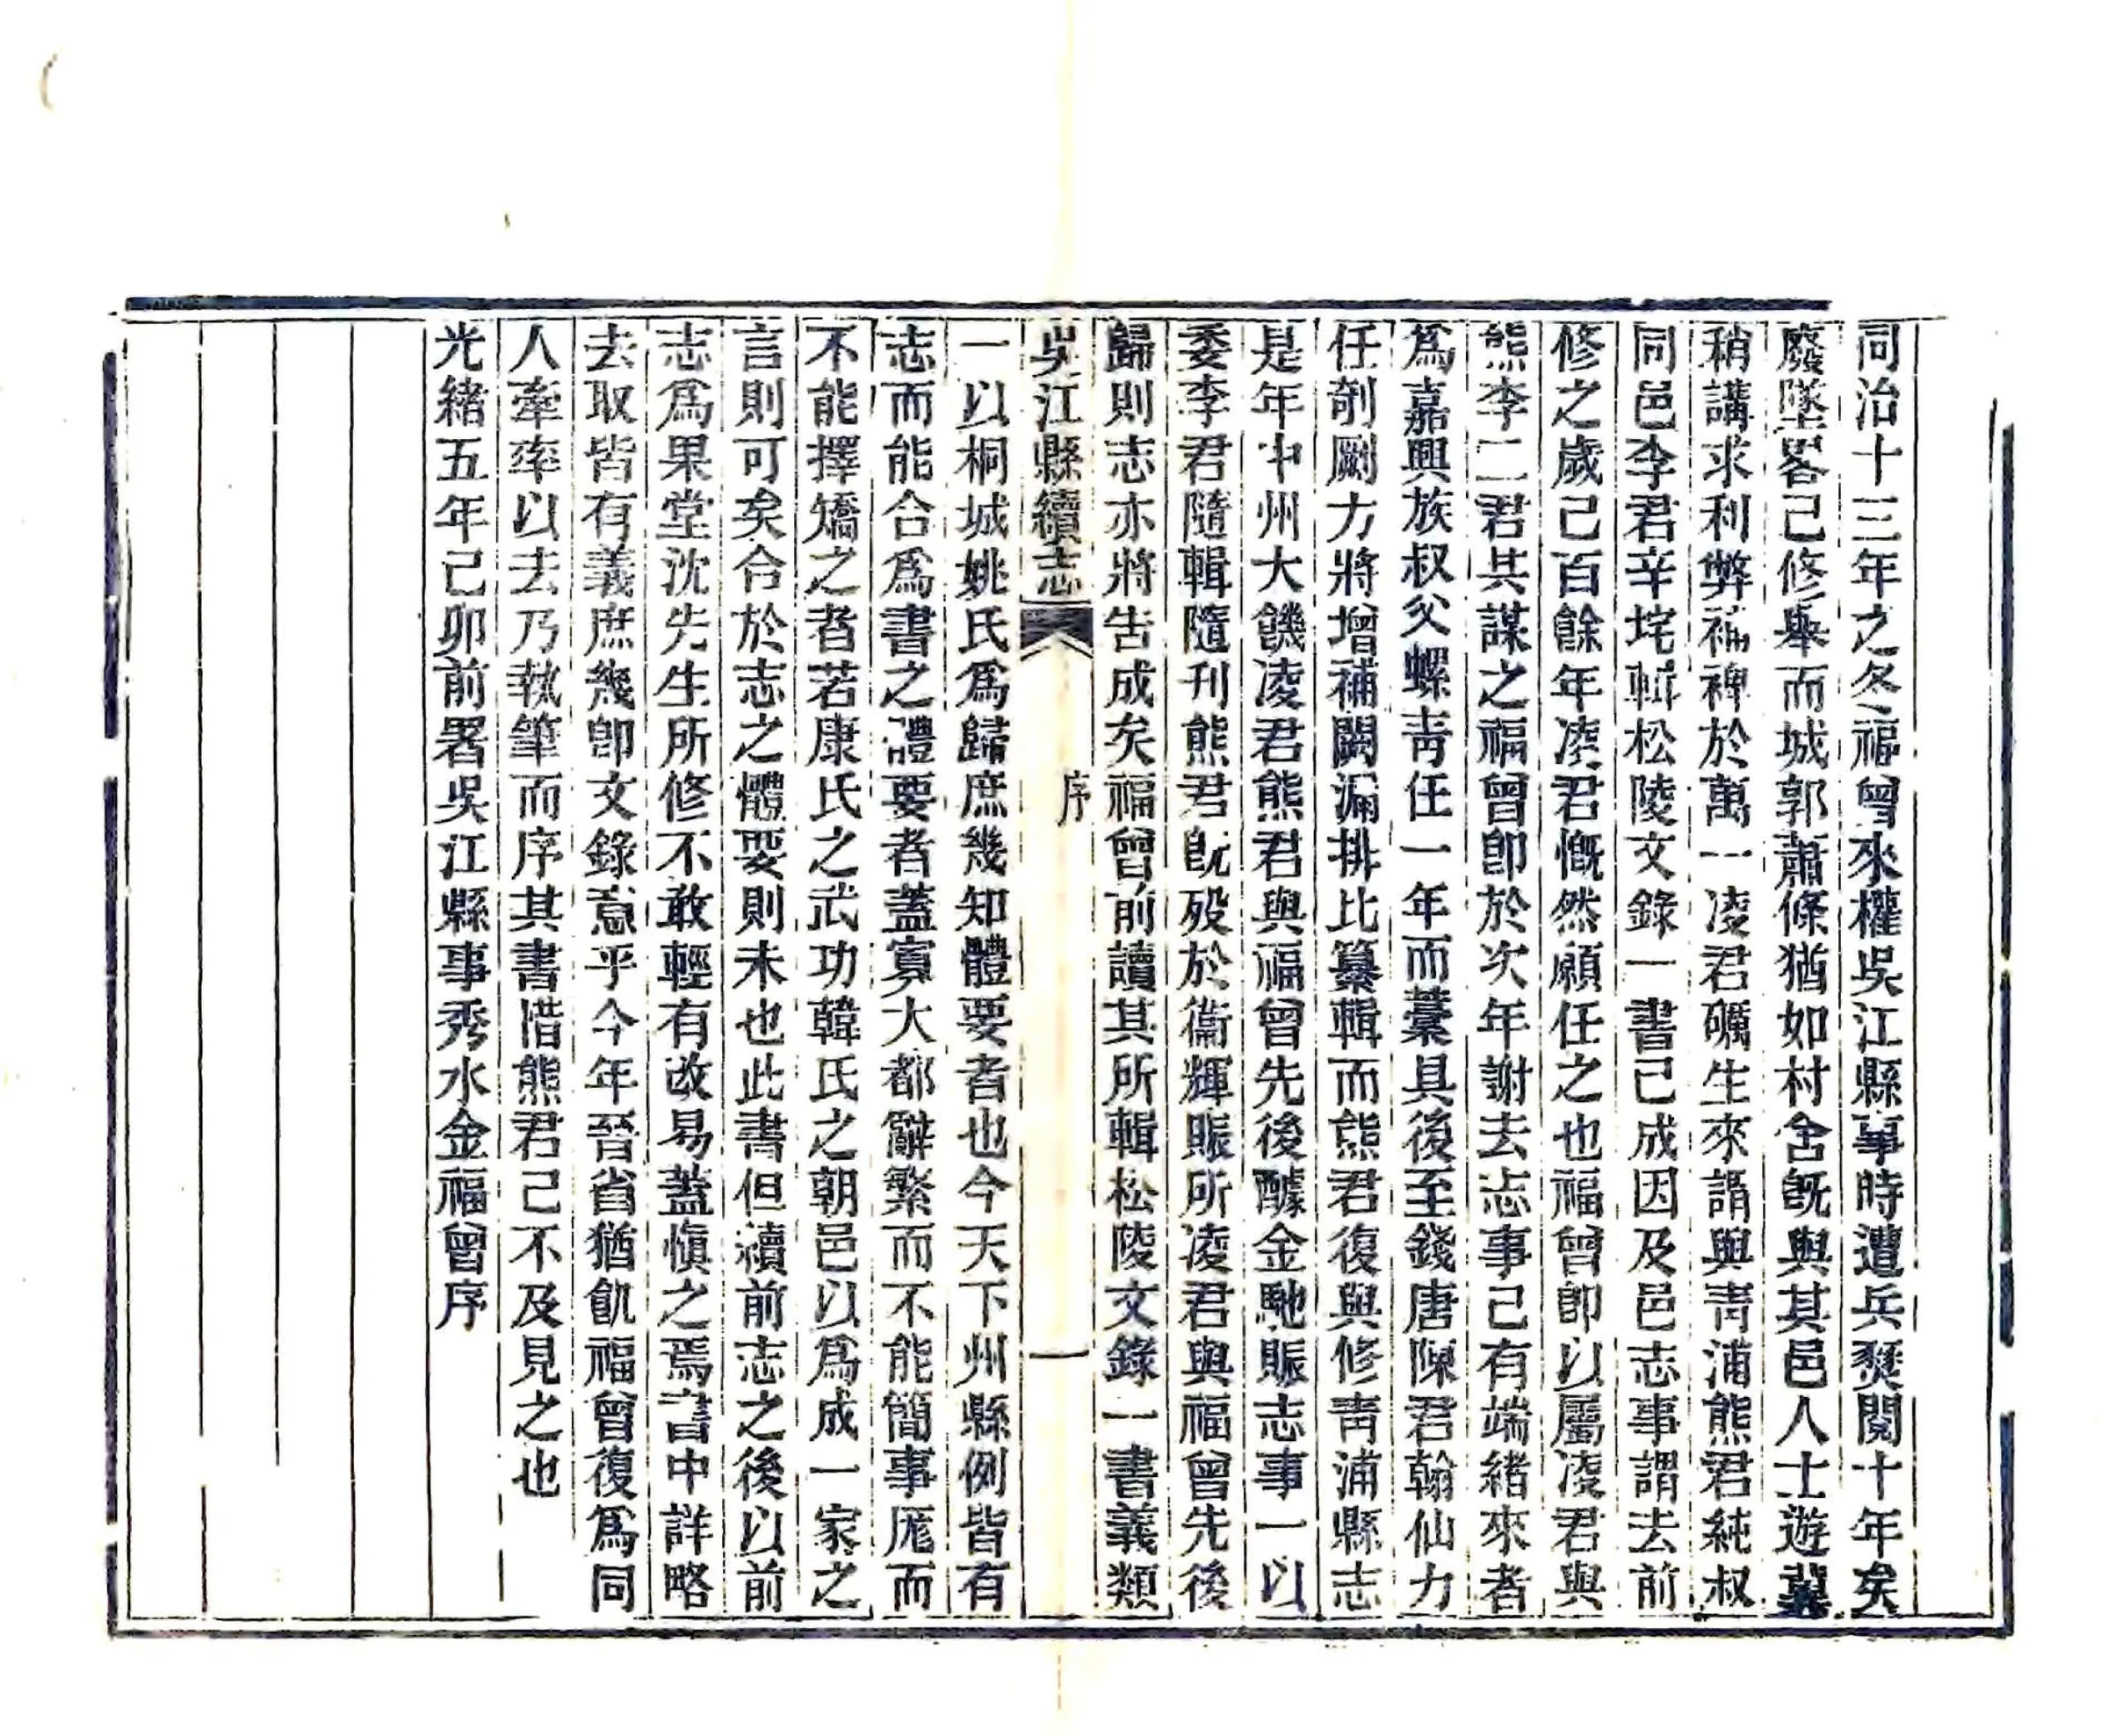 同治十三年之冬福曾來權吳江縣事時遭兵燹閱十年矣
廢墜畧已修舉而城郭蕭條猶如村舍旣與其邑人士遊冀
稍講求利弊補裨於萬一凌君礪生來謂與靑浦熊君純叔
同邑李君辛垞輯松陵文錄一書已成因及邑志事謂去前
修之歲已百餘年凌君慨然願任之也福曾卽以屬凌君與
熊李二君共謀之福曾卽於次年謝去志事已有端緒來者
爲嘉興族叔父螺靑任一年而藁具後至錢唐陳君翰仙力
任剞劂方將增補闕漏排比纂輯而熊君復與修靑浦縣志
是年中州大饑凌君熊君與福曾先後醵金馳賑志事一以
委李君隨輯隨刊熊君旣歿於衞輝賑所凌君與福曾先後
歸則志亦將告成矣福曾前讀其所輯松陵文錄一書義類
吳江縣續志
序
一
一以桐城姚氏爲歸庶幾知體要者也今天下州縣例皆有
志而能合爲書之禮要者蓋寡大都辭繁而不能簡事厖而
不能擇矯之者若康氏之武功韓氏之朝邑以爲成一家之
言則可矣合於志之體要則未也此書但續前志之後以前
志爲果堂沈先生所修不敢輕有改易蓋愼之焉書中詳略
去取皆有義庶幾卽文錄意乎今年晉省猶飢福曾復爲同
人牽率以去乃執筆而序其書惜熊君已不及見之也
光緖五年己卯前署吳江縣事秀水金福曾序